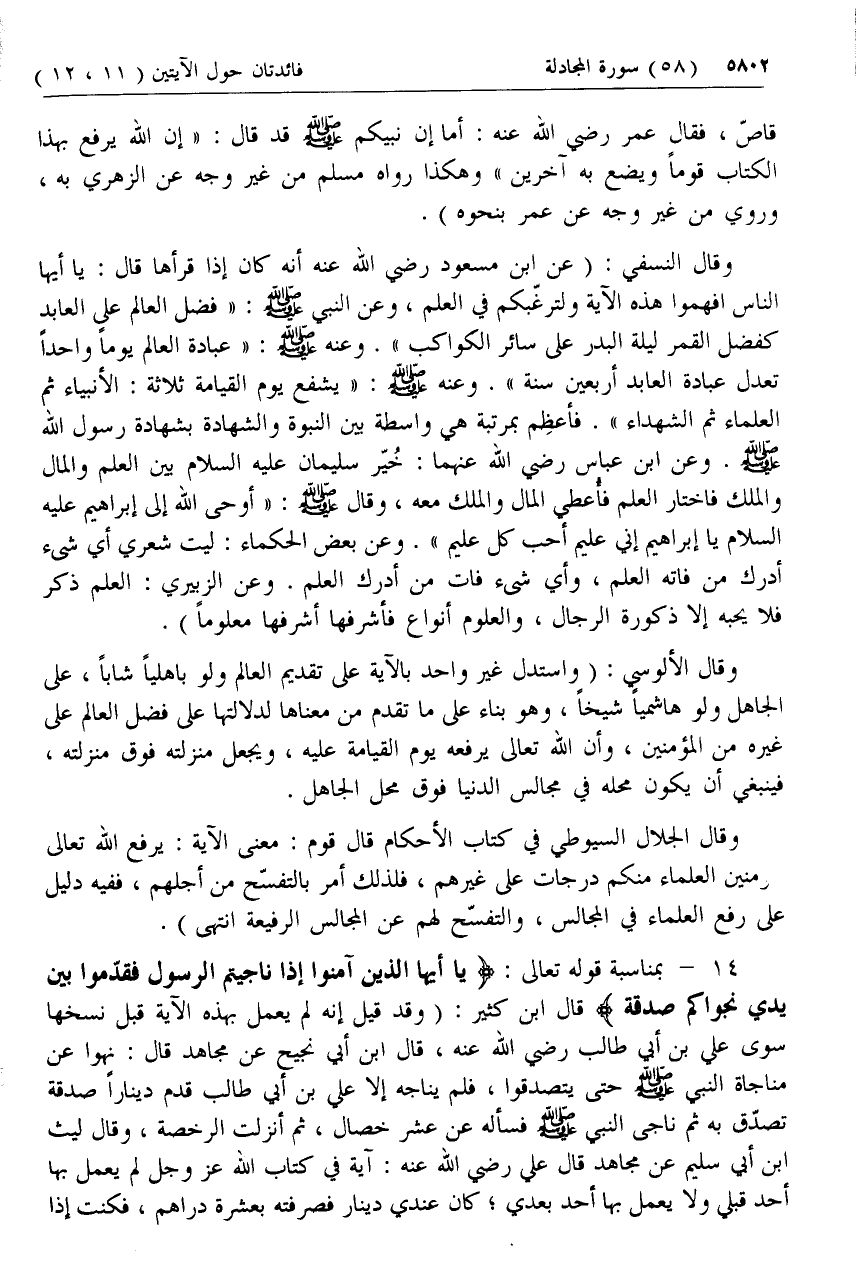 ٥٨٠٢ (٥٨) سورة المجادلة فائدتان حول الآيتين ( ١١ ، ١٢ )
قاصّ ، فقال عمر رضي الله عنه : أما إن نبيكم ﷺ قد قال : « إن الله يرفع بهذا
الكتاب قوماً ويضع به آخرين » وهكذا رواه مسلم من غير وجه عن الزهري به ،
وروي من غير وجه عن عمر بنحوه ) .
وقال النسفي : ( عن ابن مسعود رضي الله عنه أنه كان إذا قرأها قال : يا أيها
الناس افهموا هذه الآية ولترغّبكم في العلم ، وعن النبي ﷺ : « فضل العالم على العابد
كفضل القمر ليلة البدر على سائر الكواكب » . وعنه ﷺ : « عبادة العالم يوماً واحداً
تعدل عبادة العابد أربعين سنة » . وعنه ﷺ : « يشفع يوم القيامة ثلاثة : الأنبياء ثم
العلماء ثم الشهداء » . فأعظِم بمرتبة هي واسطة بين النبوة والشهادة بشهادة رسول الله
ﷺ . وعن ابن عباس رضي الله عنهما : خُيّر سليمان عليه السلام بين العلم والمال
والملك فاختار العلم فأُعطي المال والملك معه ، وقال ﷺ : « أوحى الله إلى إبراهيم عليه
السلام يا إبراهيم إني عليم أحب كل عليم » . وعن بعض الحكماء : ليت شعري أي شىء
أدرك من فاته العلم ، وأي شىء فات من أدرك العلم . وعن الزبيري : العلم ذكر
فلا يحبه إلا ذكورة الرجال ، والعلوم أنواع فأشرفها أشرفها معلوماً ) .
وقال الألوسي : ( واستدل غير واحد بالآية على تقديم العالم ولو باهلياً شاباً ، على
الجاهل ولو هاشمياً شيخاً ، وهو بناء على ما تقدم من معناها لدلالتها على فضل العالم على
غيره من المؤمنين ، وأن الله تعالى يرفعه يوم القيامة عليه ، ويجعل منزلته فوق منزلته ،
فينبغي أن يكون محله في مجالس الدنيا فوق محل الجاهل .
وقال الجلال السيوطي في كتاب الأحكام قال قوم : معنى الآية : يرفع الله تعالى
ـؤمنين العلماء منكم درجات على غيرهم ، فلذلك أمر بالتفسّح من أجلهم ، ففيه دليل
على رفع العلماء في المجالس ، والتفسّح لهم عن المجالس الرفيعة انتهى ) .
١٤ – بمناسبة قوله تعالى : ﴿ يا أيها الذين آمنوا إذا ناجيتم الرسول فقدّموا بين
يدي نجواكم صدقة ﴾ قال ابن كثير : ( وقد قيل إنه لم يعمل بهذه الآية قبل نسخها
سوى علي بن أبي طالب رضي الله عنه ، قال ابن أبي نجيح عن مجاهد قال : نهوا عن
مناجاة النبي ﷺ حتى يتصدقوا ، فلم يناجه إلا علي بن أبي طالب قدم ديناراً صدقة
تصدّق به ثم ناجى النبي ﷺ فسأله عن عشر خصال ، ثم أنزلت الرخصة ، وقال ليث
ابن أبي سليم عن مجاهد قال علي رضي الله عنه : آية في كتاب الله عز وجل لم يعمل بها
أحد قبلي ولا يعمل بها أحد بعدي ؛ كان عندي دينار فصرفته بعشرة دراهم ، فكنت إذا